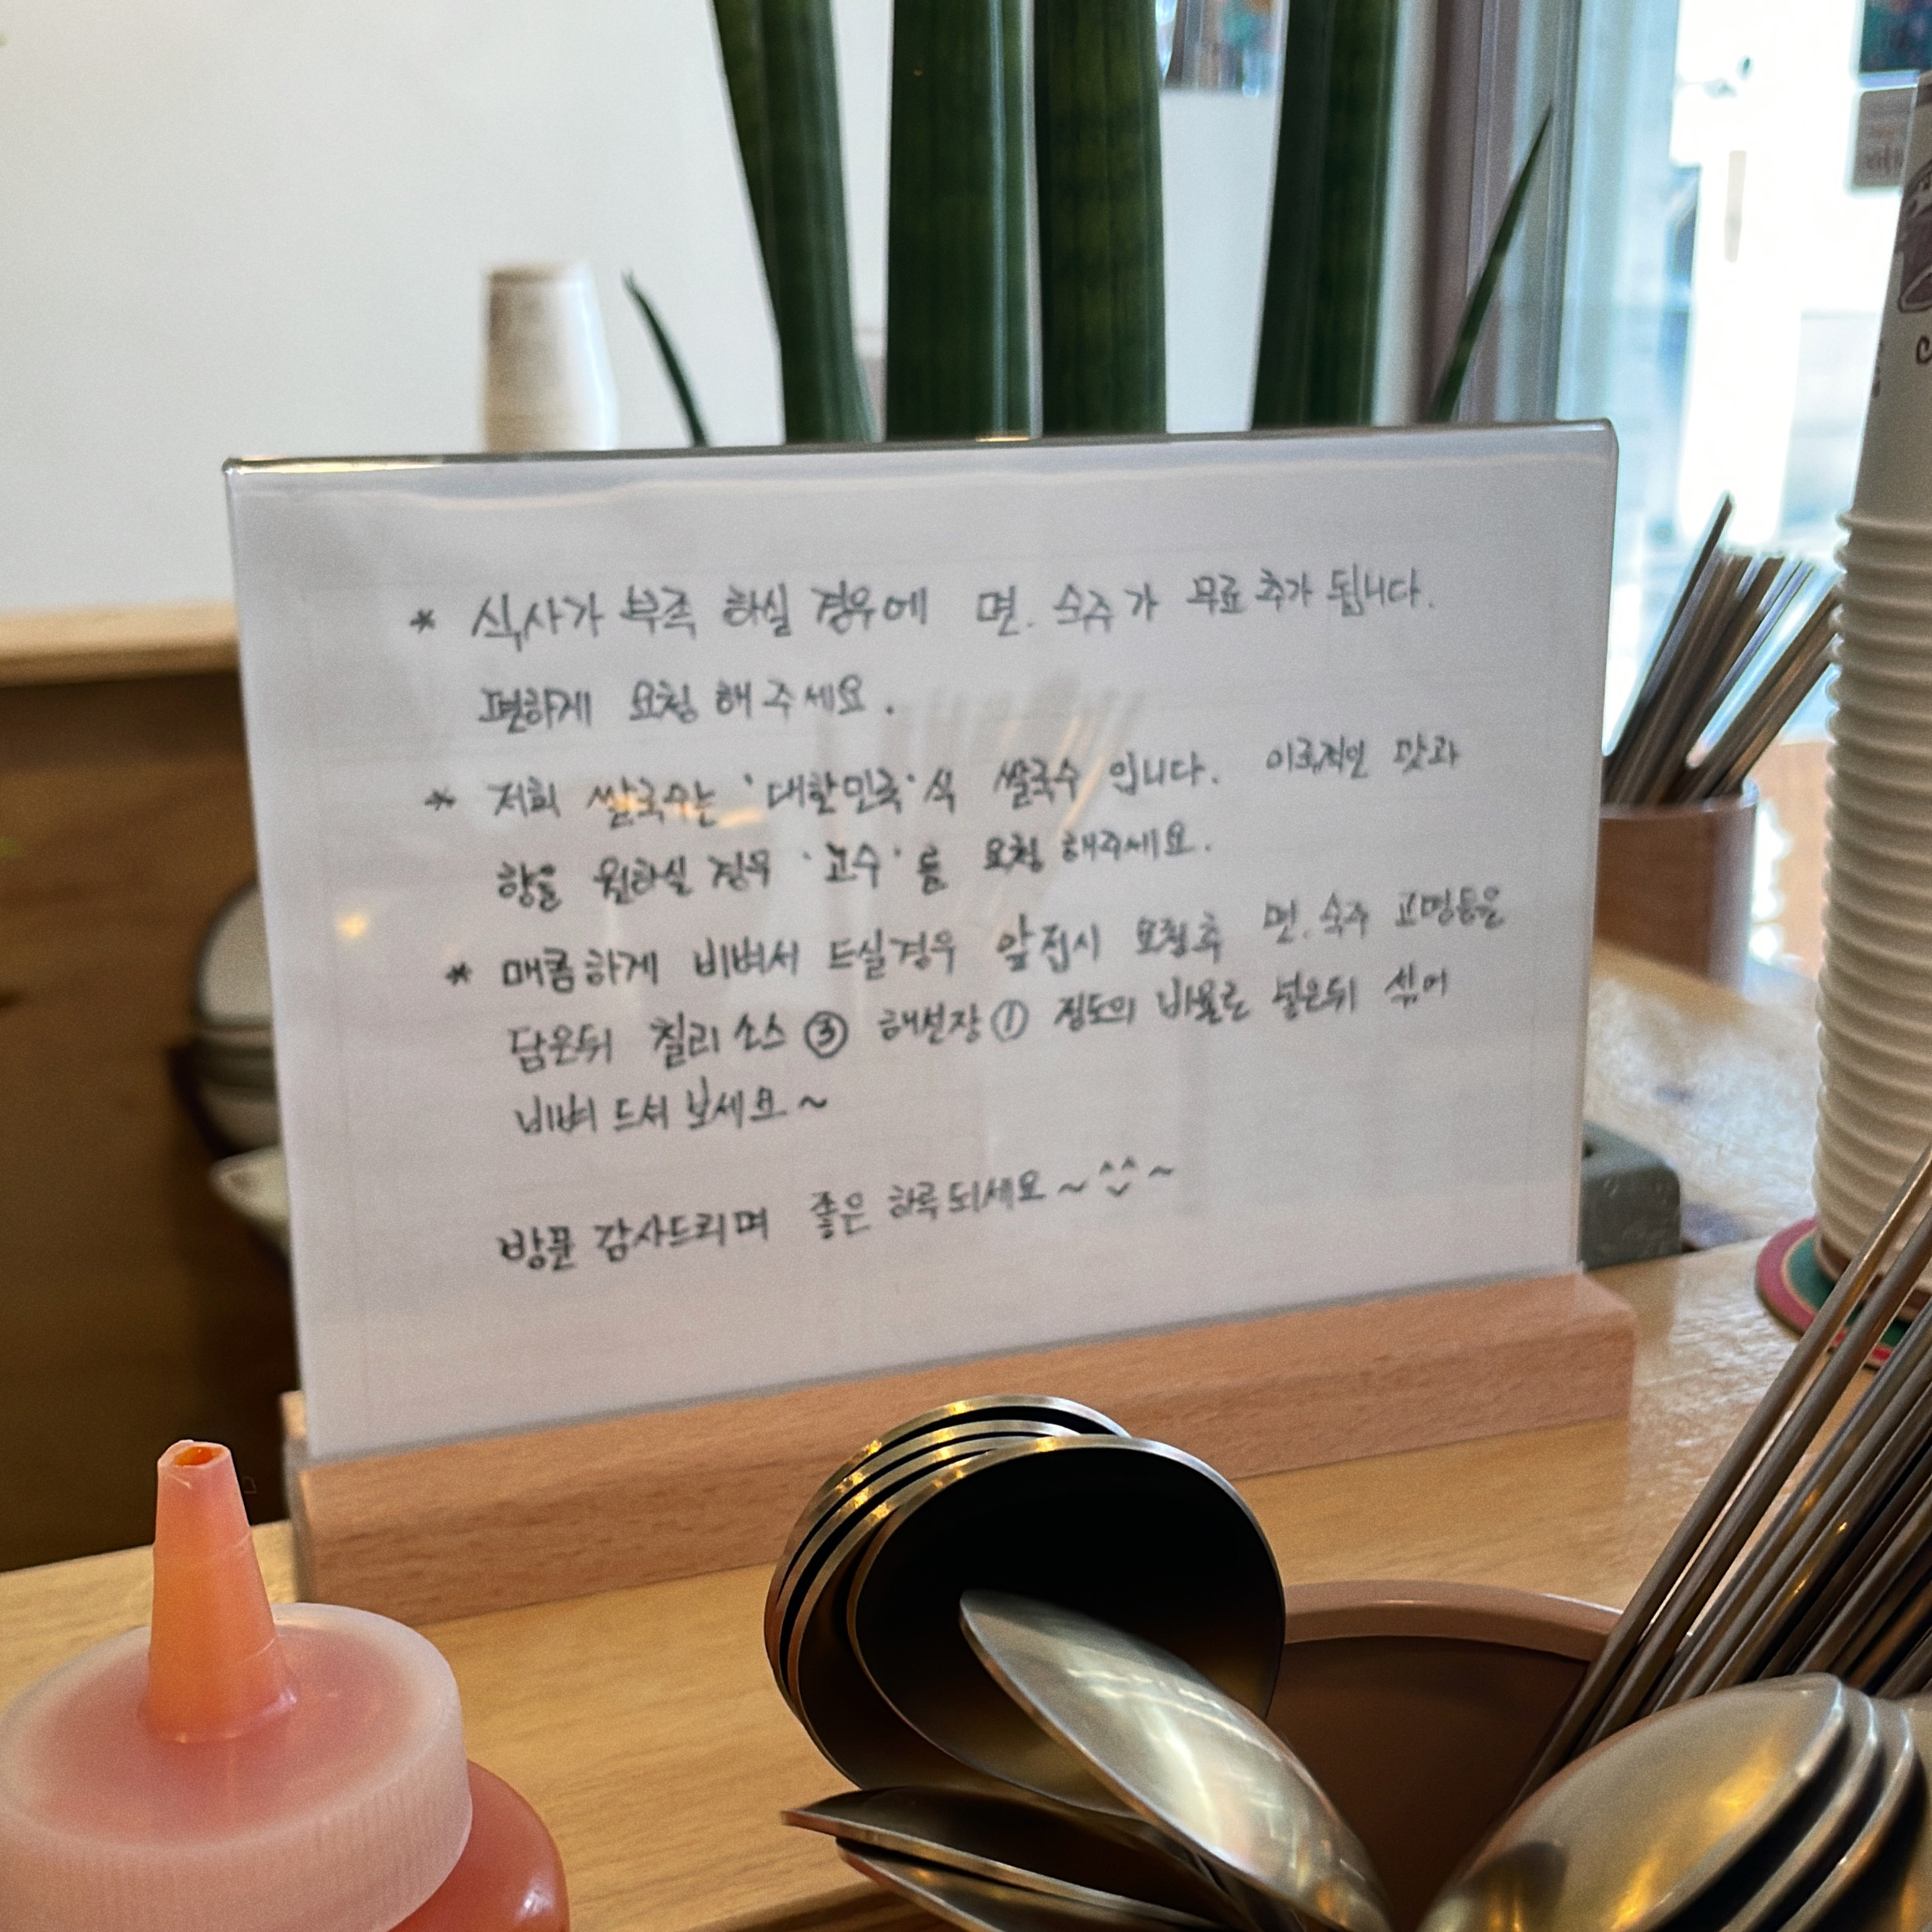 * 식사가 부족 하실 경우에 면. 숙주가 무료 추가 됩니다.
편하게 요청 해 주세요.
* 저희 쌀국수는 '대한민국'식 쌀국수 입니다. 이국적인 맛과
향을 원하실 경우 '고수'를 요청 해주세요.
* 매콤하게 비벼서 드실경우 앞접시 요청후 면. 숙주 고명등을
담은뒤 칠리소스 ③ 해선장 ① 정도의 비율로 넣은뒤 섞어
비벼 드셔 보세요~
방문 감사드리며 좋은 하루 되세요~ ^^ ~